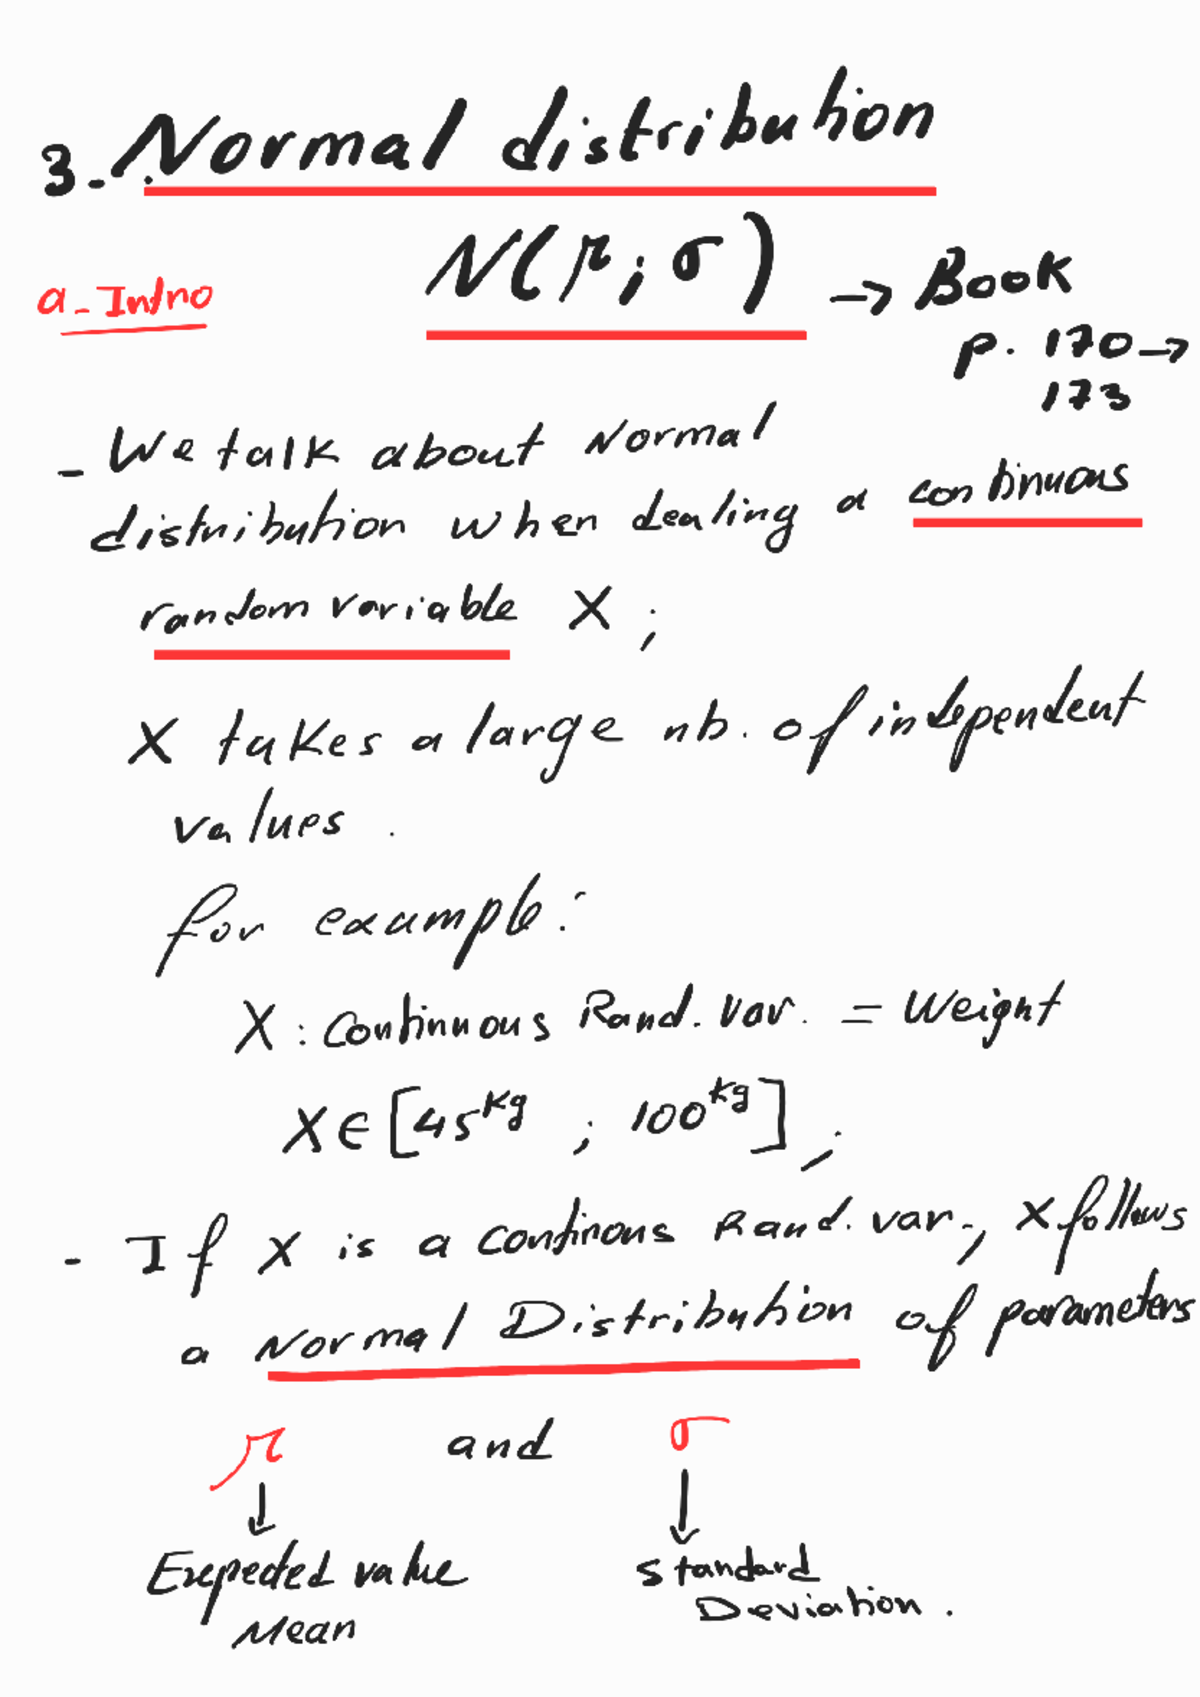 3-. Normal distribution
N(μ; σ) → Book
a- Intro
p. 170 →
173
- We talk about Normal
distribution when dealing a continuous
random variable X ;
X takes a large nb. of independent
values .
for example:
X : Continuous Rand. var. = Weight
X ∈ [45kg ; 100kg] ;
- If X is a continous Rand. var., X follows
a Normal Distribution of parameters
μ and σ
↓ ↓
Expected value standard
Mean Deviation .